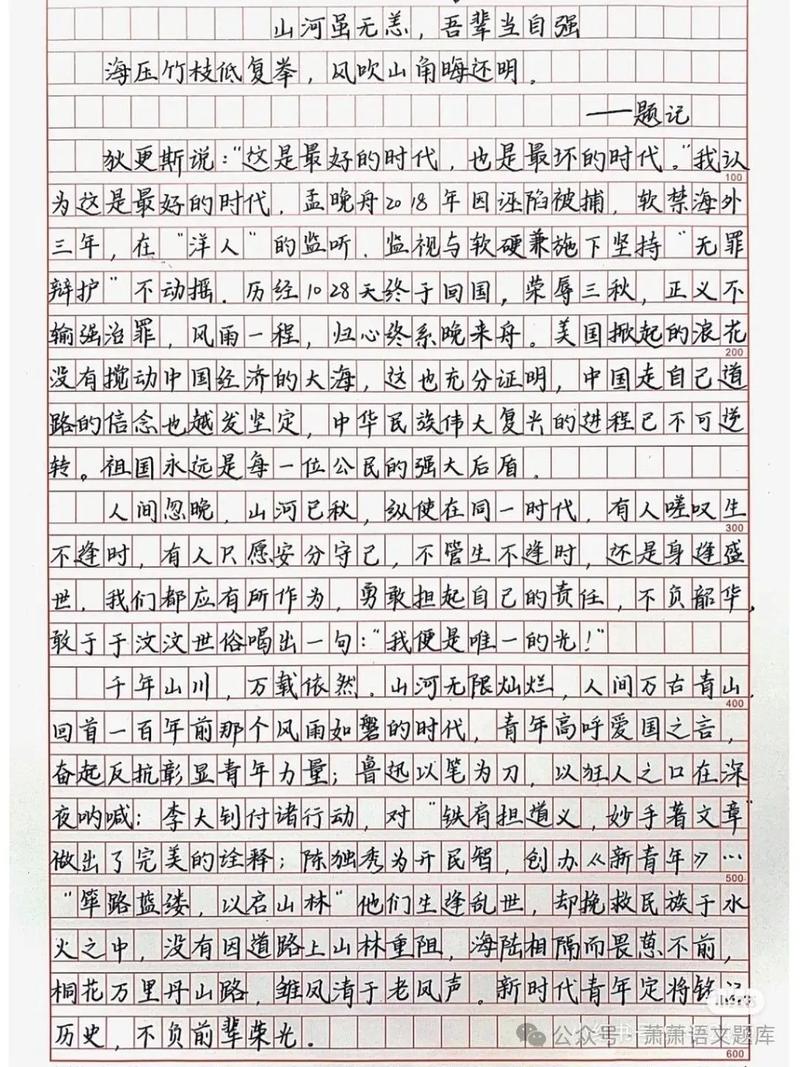 山河虽无恙，吾辈当自强
海压竹枝低复举，风吹山角晦还明。
——题记
狄更斯说：“这是最好的时代，也是最坏的时代。”我认
100
为这是最好的时代，孟晚舟2018年因诬陷被捕，软禁海外
三年，在“洋人”的监听、监视与软硬兼施下坚持“无罪
辩护”不动摇．历经1028天终于回国，荣辱三秋，正义不
输强治罪，风雨一程，归心终系晚来舟。美国掀起的浪花
200
没有搅动中国经济的大海，这也充分证明，中国走自己道
路的信念也越发坚定，中华民族伟大复兴的进程已不可逆
转。祖国永远是每一位公民的强大后盾．
人间忽晚，山河已秋，纵使在同一时代，有人嗟叹生
300
不逢时，有人只愿安分守己，不管生不逢时，还是身逢盛
世，我们都应有所作为，勇敢担起自己的责任，不负韶华，
敢于于汶汶世俗喝出一句：“我便是唯一的光！”
千年山川，万载依然．山河无限灿烂，人间万古青山，
400
回首一百年前那个风雨如磐的时代，青年高呼爱国之言，
奋起反抗彰显青年力量；鲁迅以笔为刀，以狂人之口在深
夜呐喊；李大钊付诸行动，对“铁肩担道义，妙手著文章”
做出了完美的诠释；陈独秀为开民智，创办《新青年》…
500
“筚路蓝缕，以启山林”他们生逢乱世，却挽救民族于水
火之中，没有因道路上山林重阻，海陆相隔而畏葸不前，
桐花万里丹山路，雏凤清于老凤声。新时代青年定将铭记
历史，不负前辈荣光．
公众号·萧萧语文题库
600